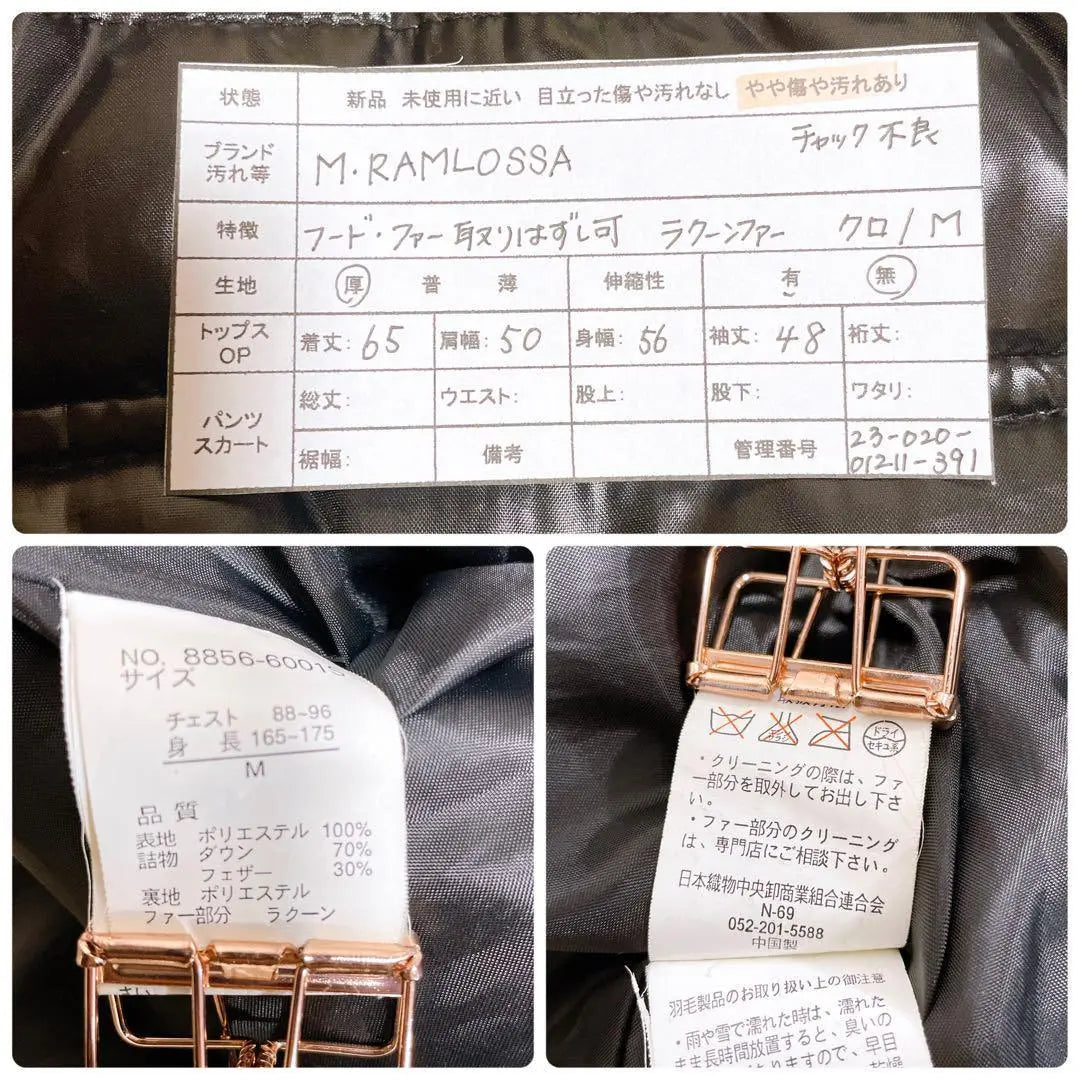 状態 新品 未使用に近い 目立った傷や汚れなし やや傷や汚れあり
ブランド 汚れ等 M.RAMLOSSA チャック不良
特徴 フード・ファー取りはずし可 ラクーンファー クロ/M
生地 厚 普 薄 伸縮性 有 無
トップス OP 着丈: 65 肩幅: 50 身幅: 56 袖丈: 48 裄丈:
パンツ スカート 総丈: ウエスト: 股上: 股下: ワタリ:
裾幅: 備考 管理番号 23-020-
01211-391
NO. 8856-6001
サイズ
チェスト 88~96
身 長 165~175
M
品 質
表地 ポリエステル 100%
詰物 ダウン 70%
フェザー 30%
裏地 ポリエステル
ファー部分 ラクーン
さい
ドライ
セキユ系
・クリーニングの際は、ファ
ー部分を取外してお出し下さ
い。
・ファー部分のクリーニング
は、専門店にご相談下さい。
日本織物中央卸商業組合連合会
N-69
052-201-5588
中国製
羽毛製品のお取り扱い上の御注意
・雨や雪で濡れた時は、濡れた
まま長時間放置すると、臭いの
ありますので、早目